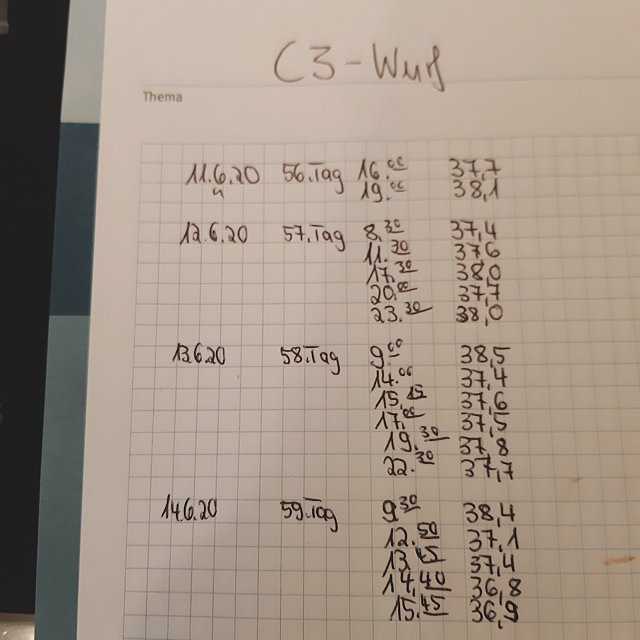 C3-Wurf
Thema
11.6.20 56.Tag 16.00 37,7
19.00 38,1
12.6.20 57.Tag 8.30 37,4
11.30 37,6
17.30 38,0
20.00 37,7
23.30 38,0
13.6.20 58.Tag 9.00 38,5
14.00 37,4
15.15 37,6
17.00 37,5
19.30 37,8
22.30 37,7
14.6.20 59.Tag 9.30 38,4
12.50 37,1
13.45 37,4
14.40 36,8
15.45 36,9